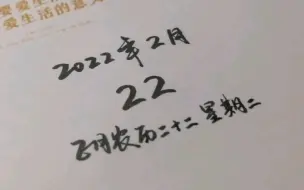 要爱生活
爱生活的意义
2022年2月
22
正月农历二十二 星期二